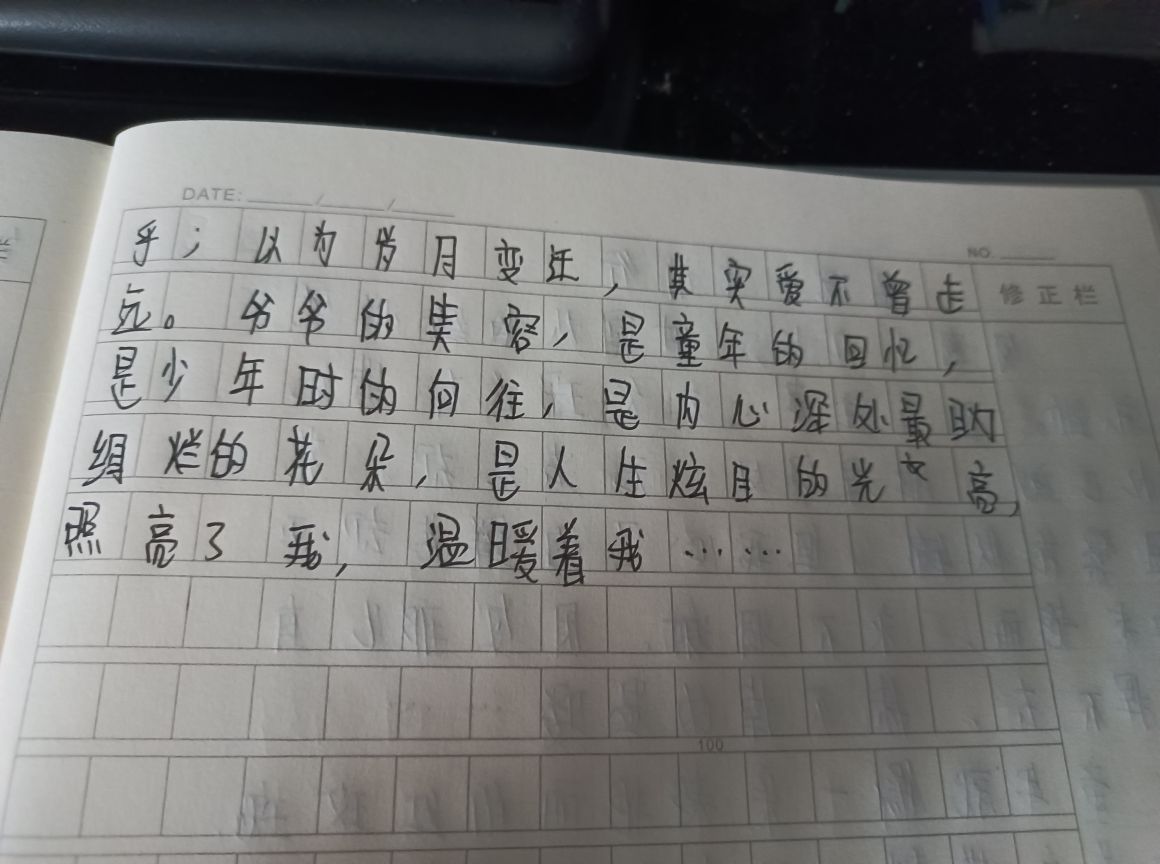 DATE: / /
NO.
乎；以为岁月变迁，其实爱不曾走
修正栏
远。爷爷的笑容，是童年的回忆，
是少年时的向往，是内心深处最
烂的花朵，是人生炫目的光
照亮了我，温暖着我……
100